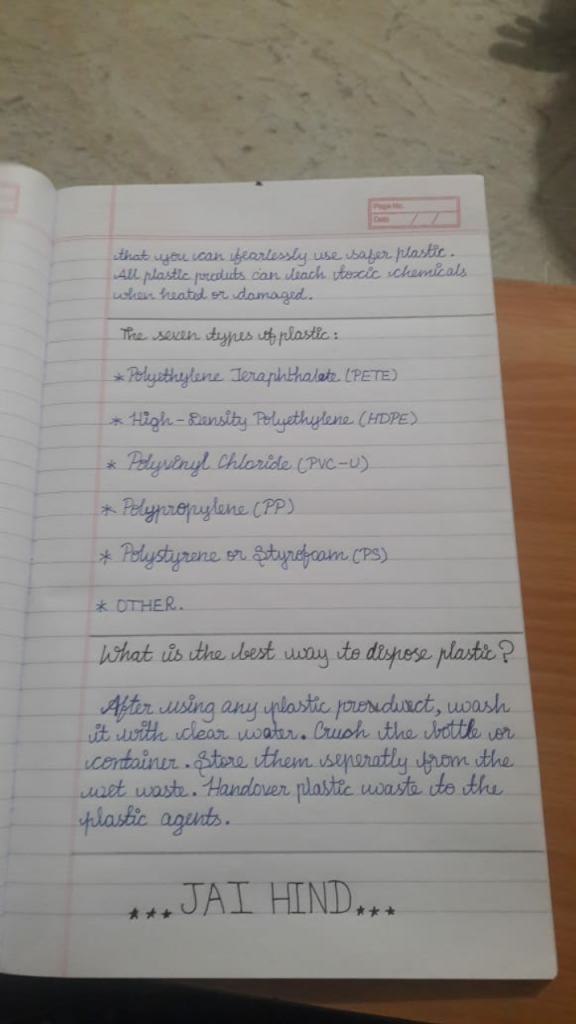 Page No.
Date / /
that you can fearlessly use safer plastic.
All plastic produts can leach toxic chemicals
when heated or damaged.
The seven types of plastic:
* Polyethylene Teraphthalate (PETE)
* High-Density Polyethylene (HDPE)
* Polyvinyl Chloride (PVC-U)
* Polypropylene (PP)
* Polystyrene or Styrofoam (PS)
* OTHER.
What is the best way to dispose plastic?
After using any plastic product, wash
it with clear water. Crush the bottle or
container. Store them seperatly from the
wet waste. Handover plastic waste to the
plastic agents.
*** JAI HIND ***